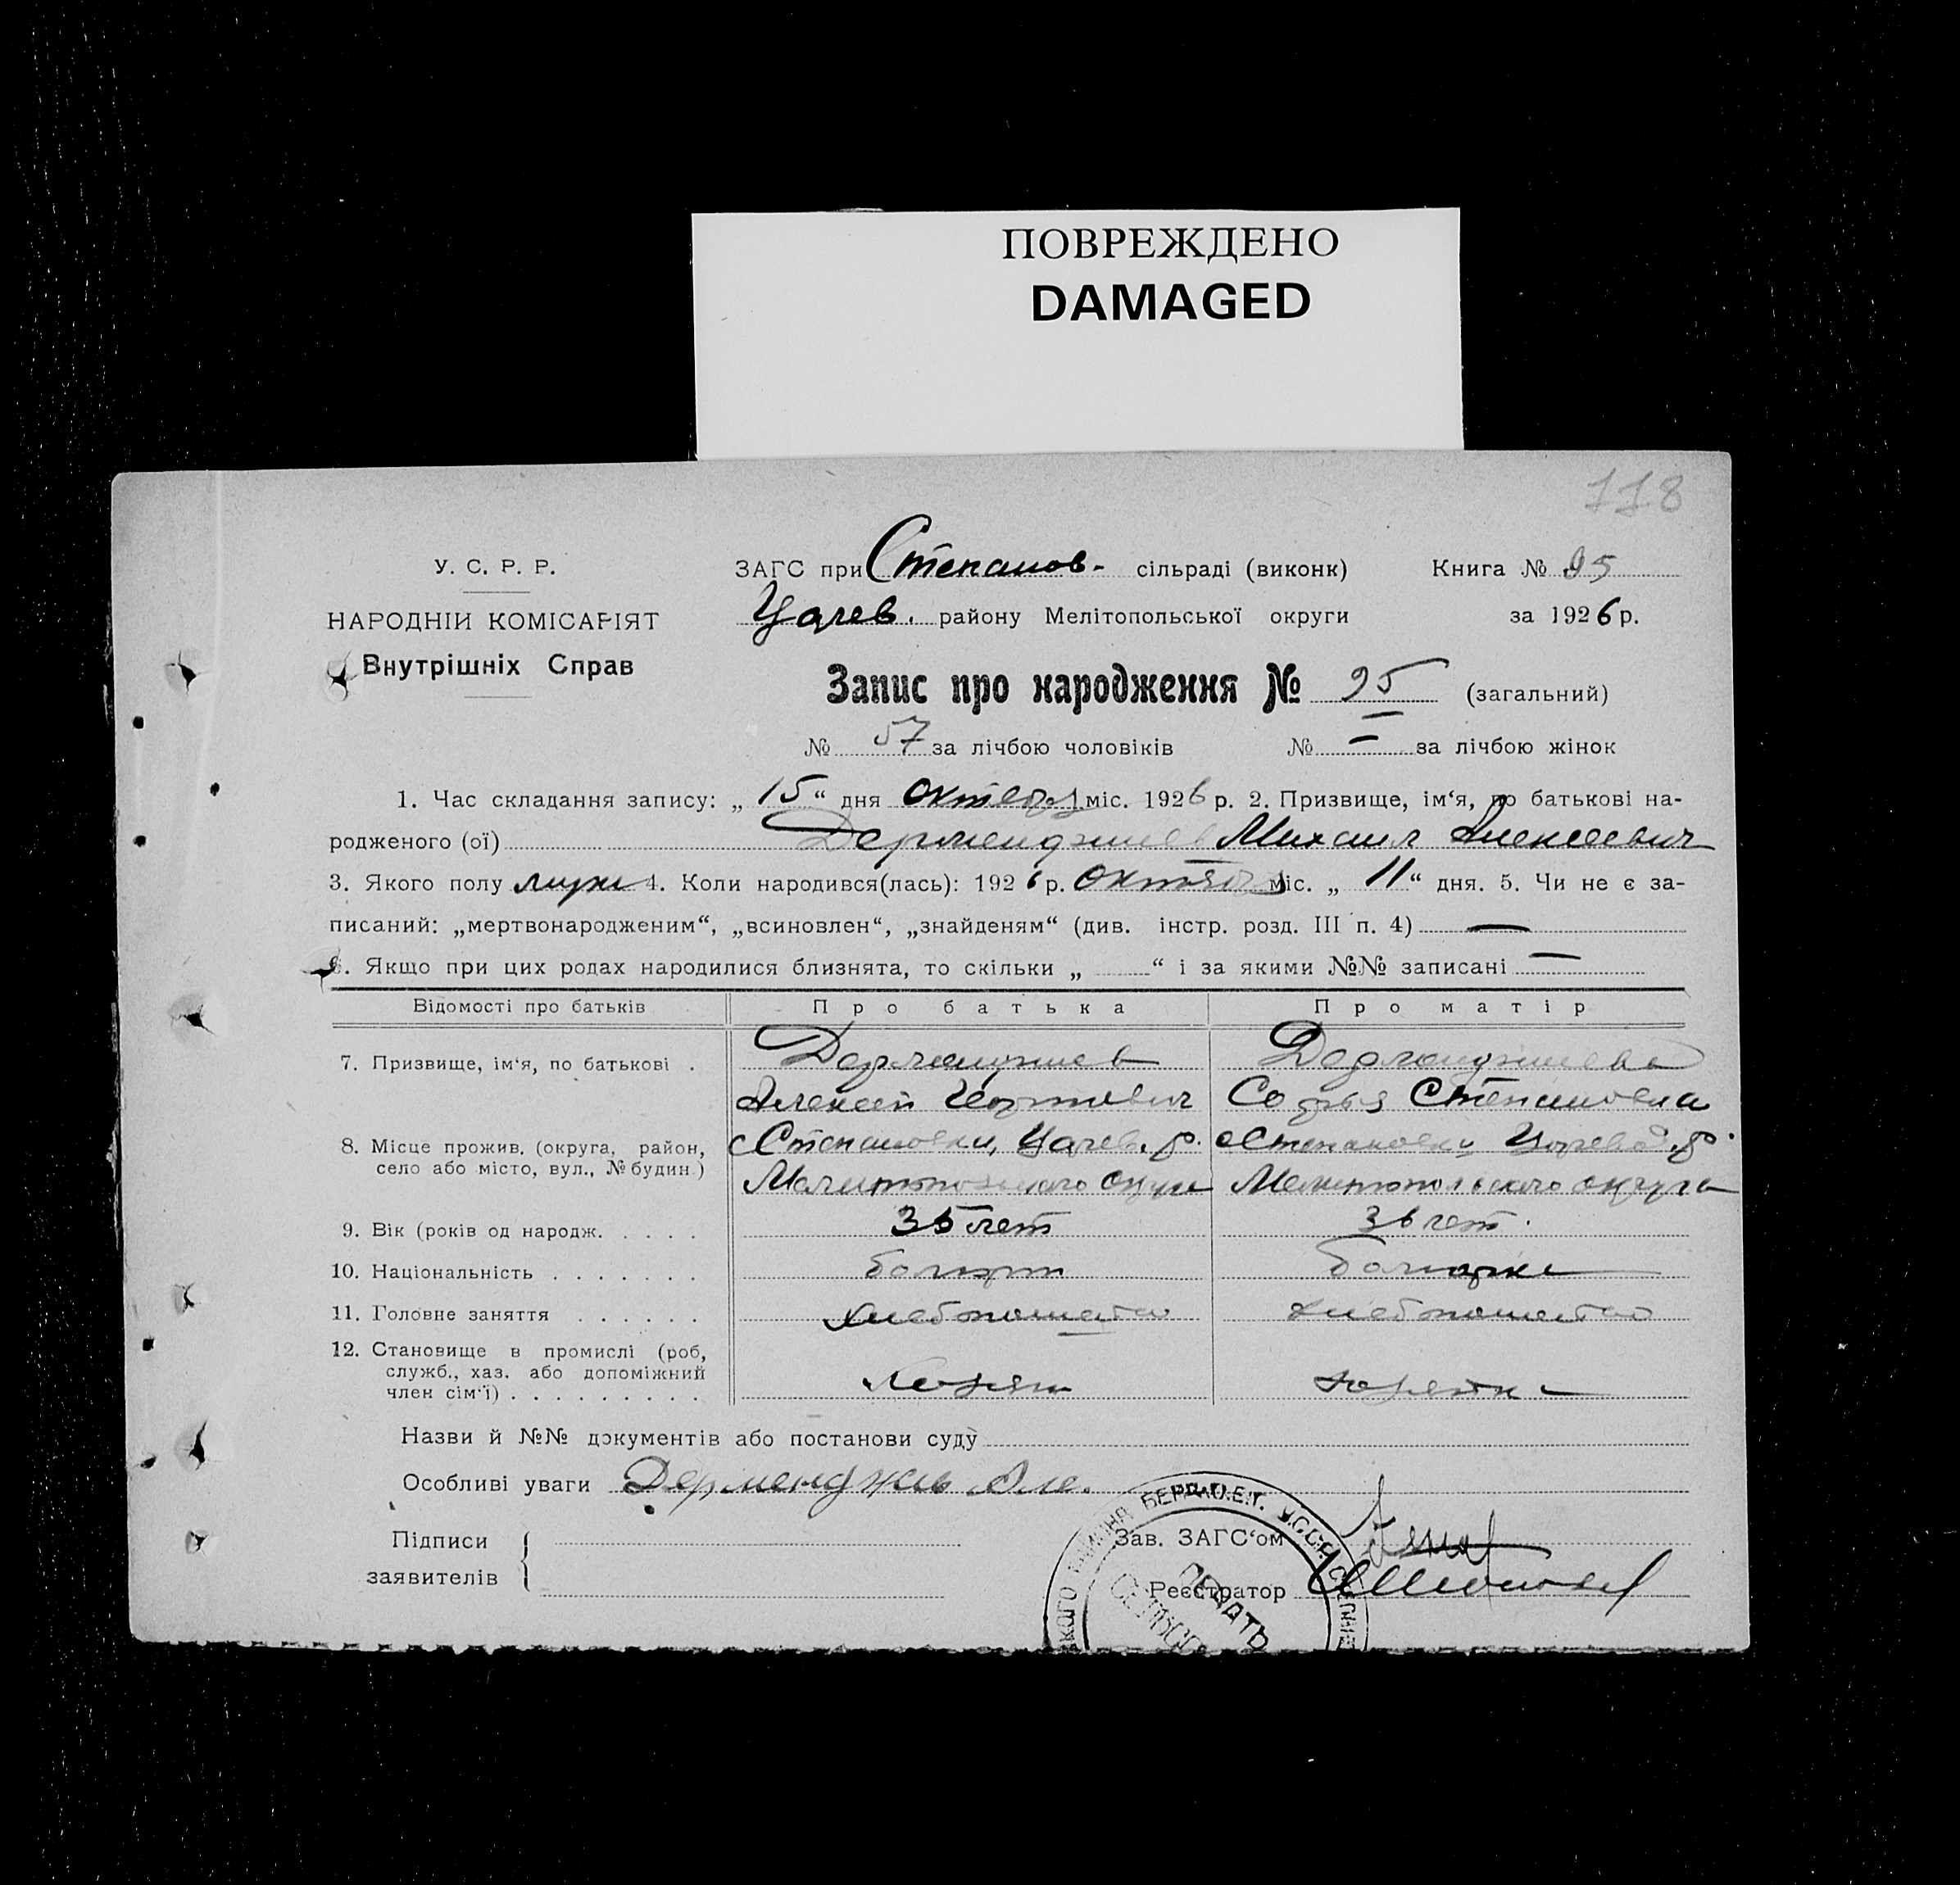 ПОВРЕЖДЕНО
DAMAGED
118
У. С. Р. Р.
ЗАГС при Степанов- сільраді (виконк) Книга № 95
НАРОДНІЙ КОМІСАРІЯТ
Цацев. району Мелітопольської округи за 1926 р.
Внутрішніх Справ
Запис про народження № 95 (загальний)
№ 57 за лічбою чоловіків № — за лічбою жінок
1. Час складання запису: „15“ дня октября міс. 1926 р. 2. Призвище, ім‘я, по батькові на-
родженого (ої) Дерменджиев Михаил Алексеевич
3. Якого полу муж 4. Коли народився(лась): 1926 р. октября міс. „11“ дня. 5. Чи не є за-
писаний: „мертвонародженим“, „всиновлен“, „знайденям“ (див. інстр. розд. III п. 4) —
6. Якщо при цих родах народилися близнята, то скільки „ “ і за якими №№ записані —
Відомості про батьків Про батька Про матір
7. Призвище, ім‘я, по батькові . Дерменджиев Дерменджиева
Алексей Георгиевич Софья Степановна
8. Місце прожив. (округа, район, с Степановки, р. с Степановки р.
село або місто, вул., № будин.) Мелитопольского округа Мелитопольского округа
9. Вік (років од народж. . . . . 35 лет 36 лет.
10. Національність . . . . . . . болгарин болгарка
11. Головне заняття . . . . . . хлебопашество хлебопашество
12. Становище в промислі (роб,
служб., хаз. або допоміжний
член сім‘ї) . . . . . . . . . хозяин хозяйка
Назви й №№ документів або постанови суду
Особливі уваги Дерменджи Але.
Підписи
заявителів
Зав. ЗАГС‘ом
Реєстратор